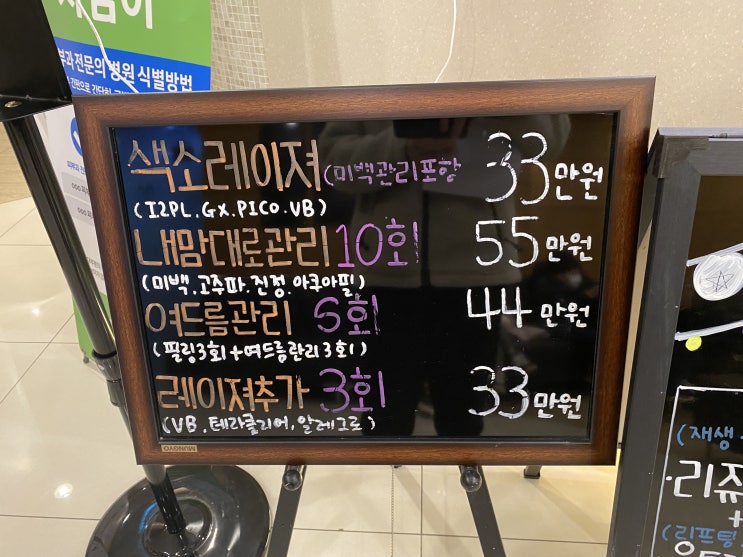 부과 전문의 병원 식별방법
색소레이져(미백관리포함 33만원
(I2PL.GX.PICO.VB)
내맘대로관리 10회 55만원
(미백.고주파.진정.아쿠아필)
여드름관리 6회 44만원
(필링3회+여드름관리3회)
레이져추가 3회 33만원
(VB.테라클리어,알레그로)
MUNGYO
(재생
리쥬
+
(리프팅